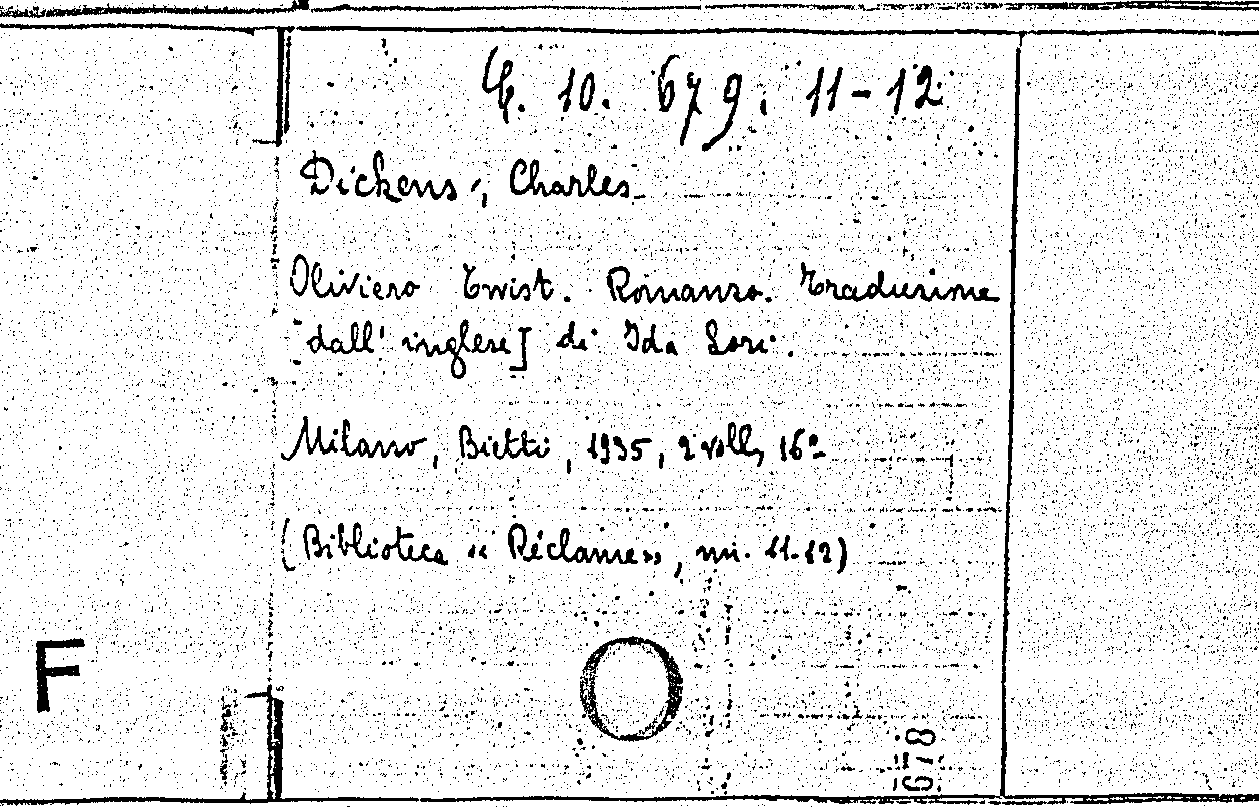 C. 10. 679. 11-12
Dickens, Charles
Oliviero Twist. Romanzo. Traduzione
[dall' inglese] di Ida Lori.
Milano, Bietti, 1935, 2 voll., 16º
(Biblioteca «Réclame», nn. 11-12)
F
678